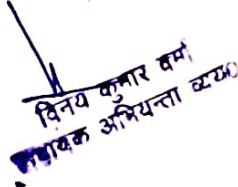 विनय कुमार वर्मा
सहायक अभियन्ता